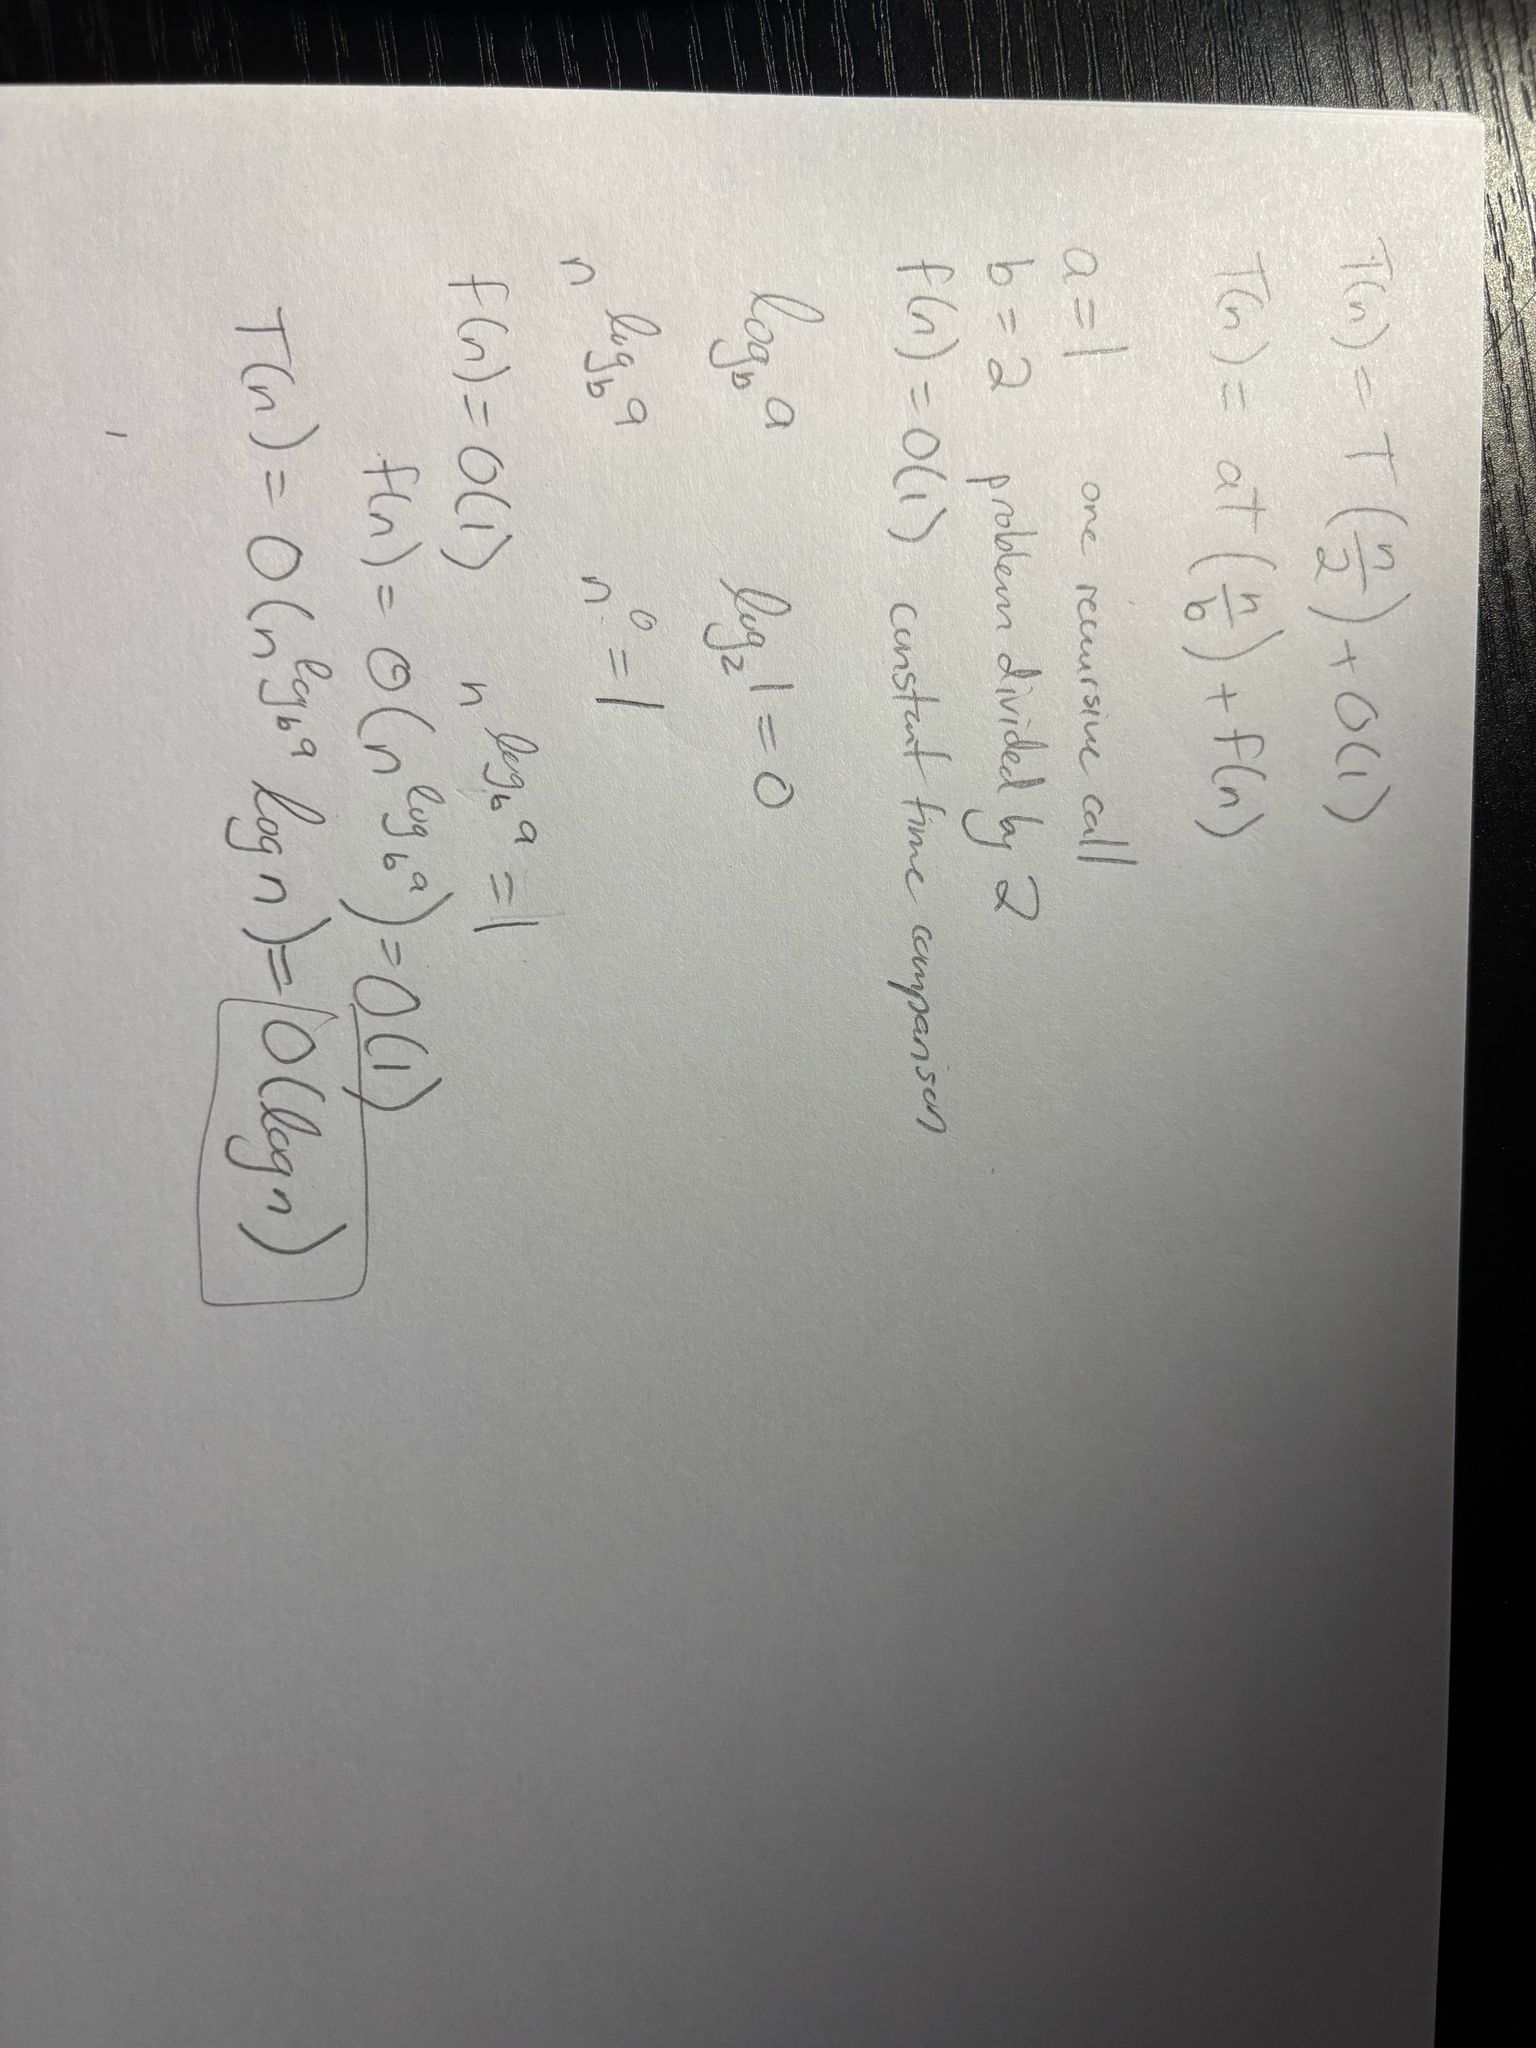 T(n) = T(n/2) + O(1)
T(n) = aT(n/b) + f(n)
a = 1 one recursive call
b = 2 problem divided by 2
f(n) = O(1) constant time comparison
log_b a log_2 1 = 0
n^log_b a n^0 = 1
f(n) = O(1) n^log_b a = 1
f(n) = Θ(n^log_b a) = O(1)
T(n) = O(n^log_b a log n) = O(log n)